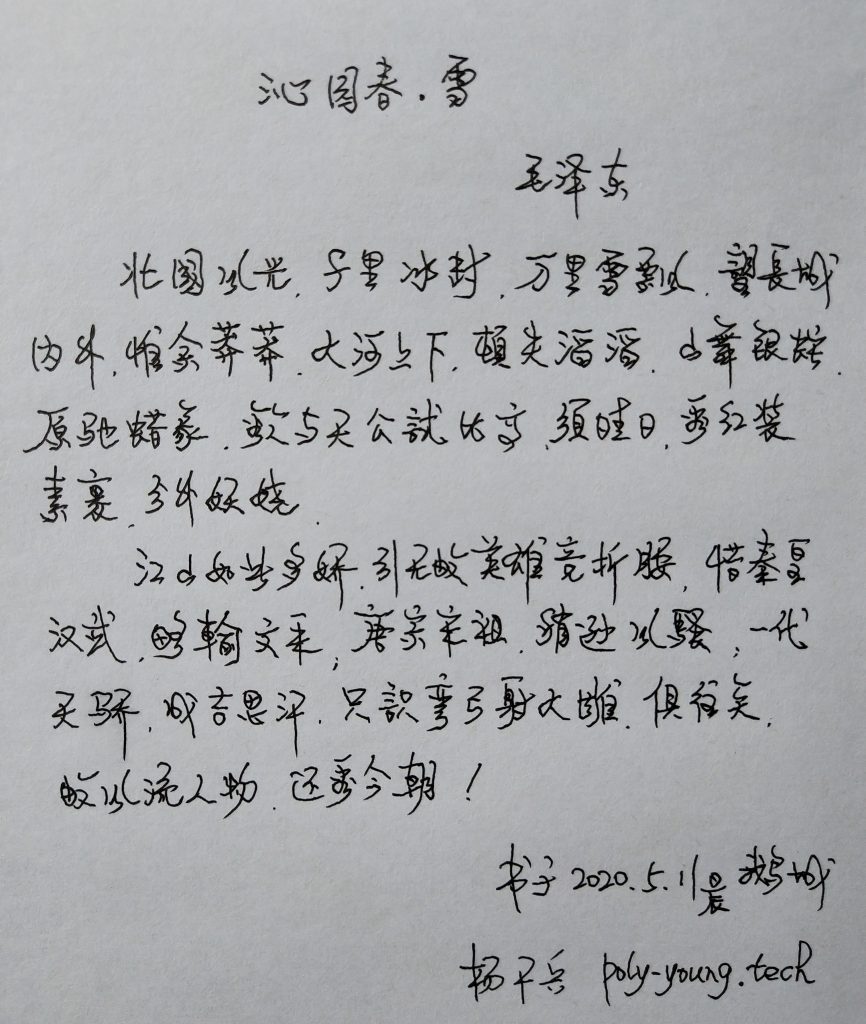 沁园春·雪
毛泽东
北國风光,千里冰封,万里雪飘,望長城
内外,惟余莽莽,大河上下,頓失滔滔,山舞銀蛇,
原驰蜡象,欲与天公試比高,須晴日,看红装
素裹,分外妖娆.
江山如此多娇,引无数英雄竞折腰,惜秦皇
汉武,略輸文采;唐宗宋祖,稍逊风骚;一代
天骄,成吉思汗,只識弯弓射大雕,俱往矣,
数风流人物,还看今朝!
书于 2020.5.11晨 鹅城
杨 兵 poly-young.tech